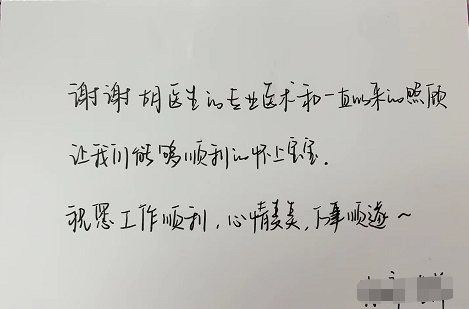 谢谢胡医生的专业医术和一直以来的照顾
让我们能够顺利的怀上宝宝.
祝您工作顺利,心情美美,万事顺遂~